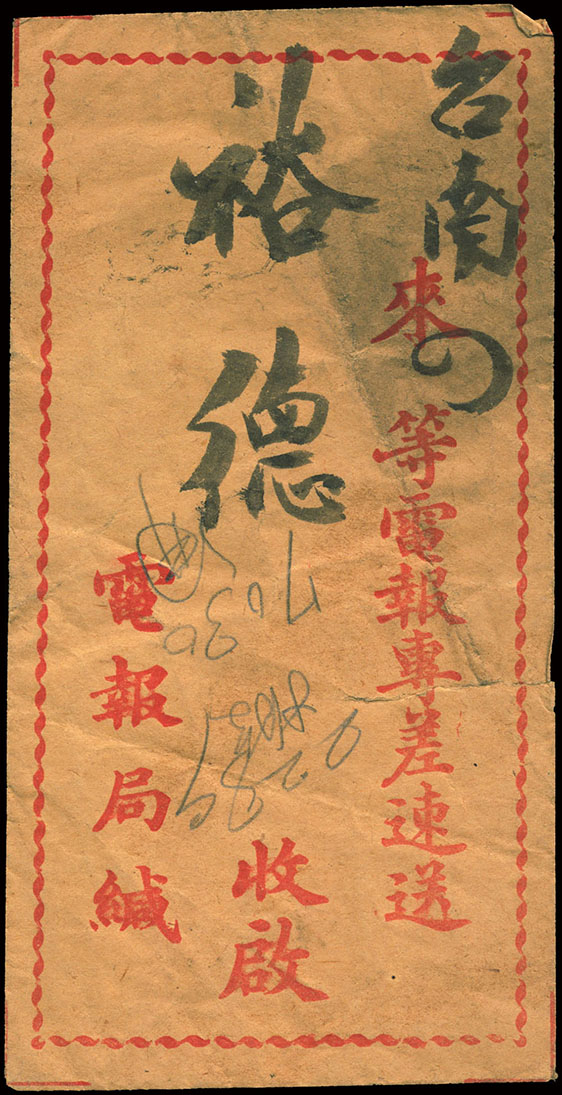 台南來 等電報專差速送
裕德 收啟
電報局緘